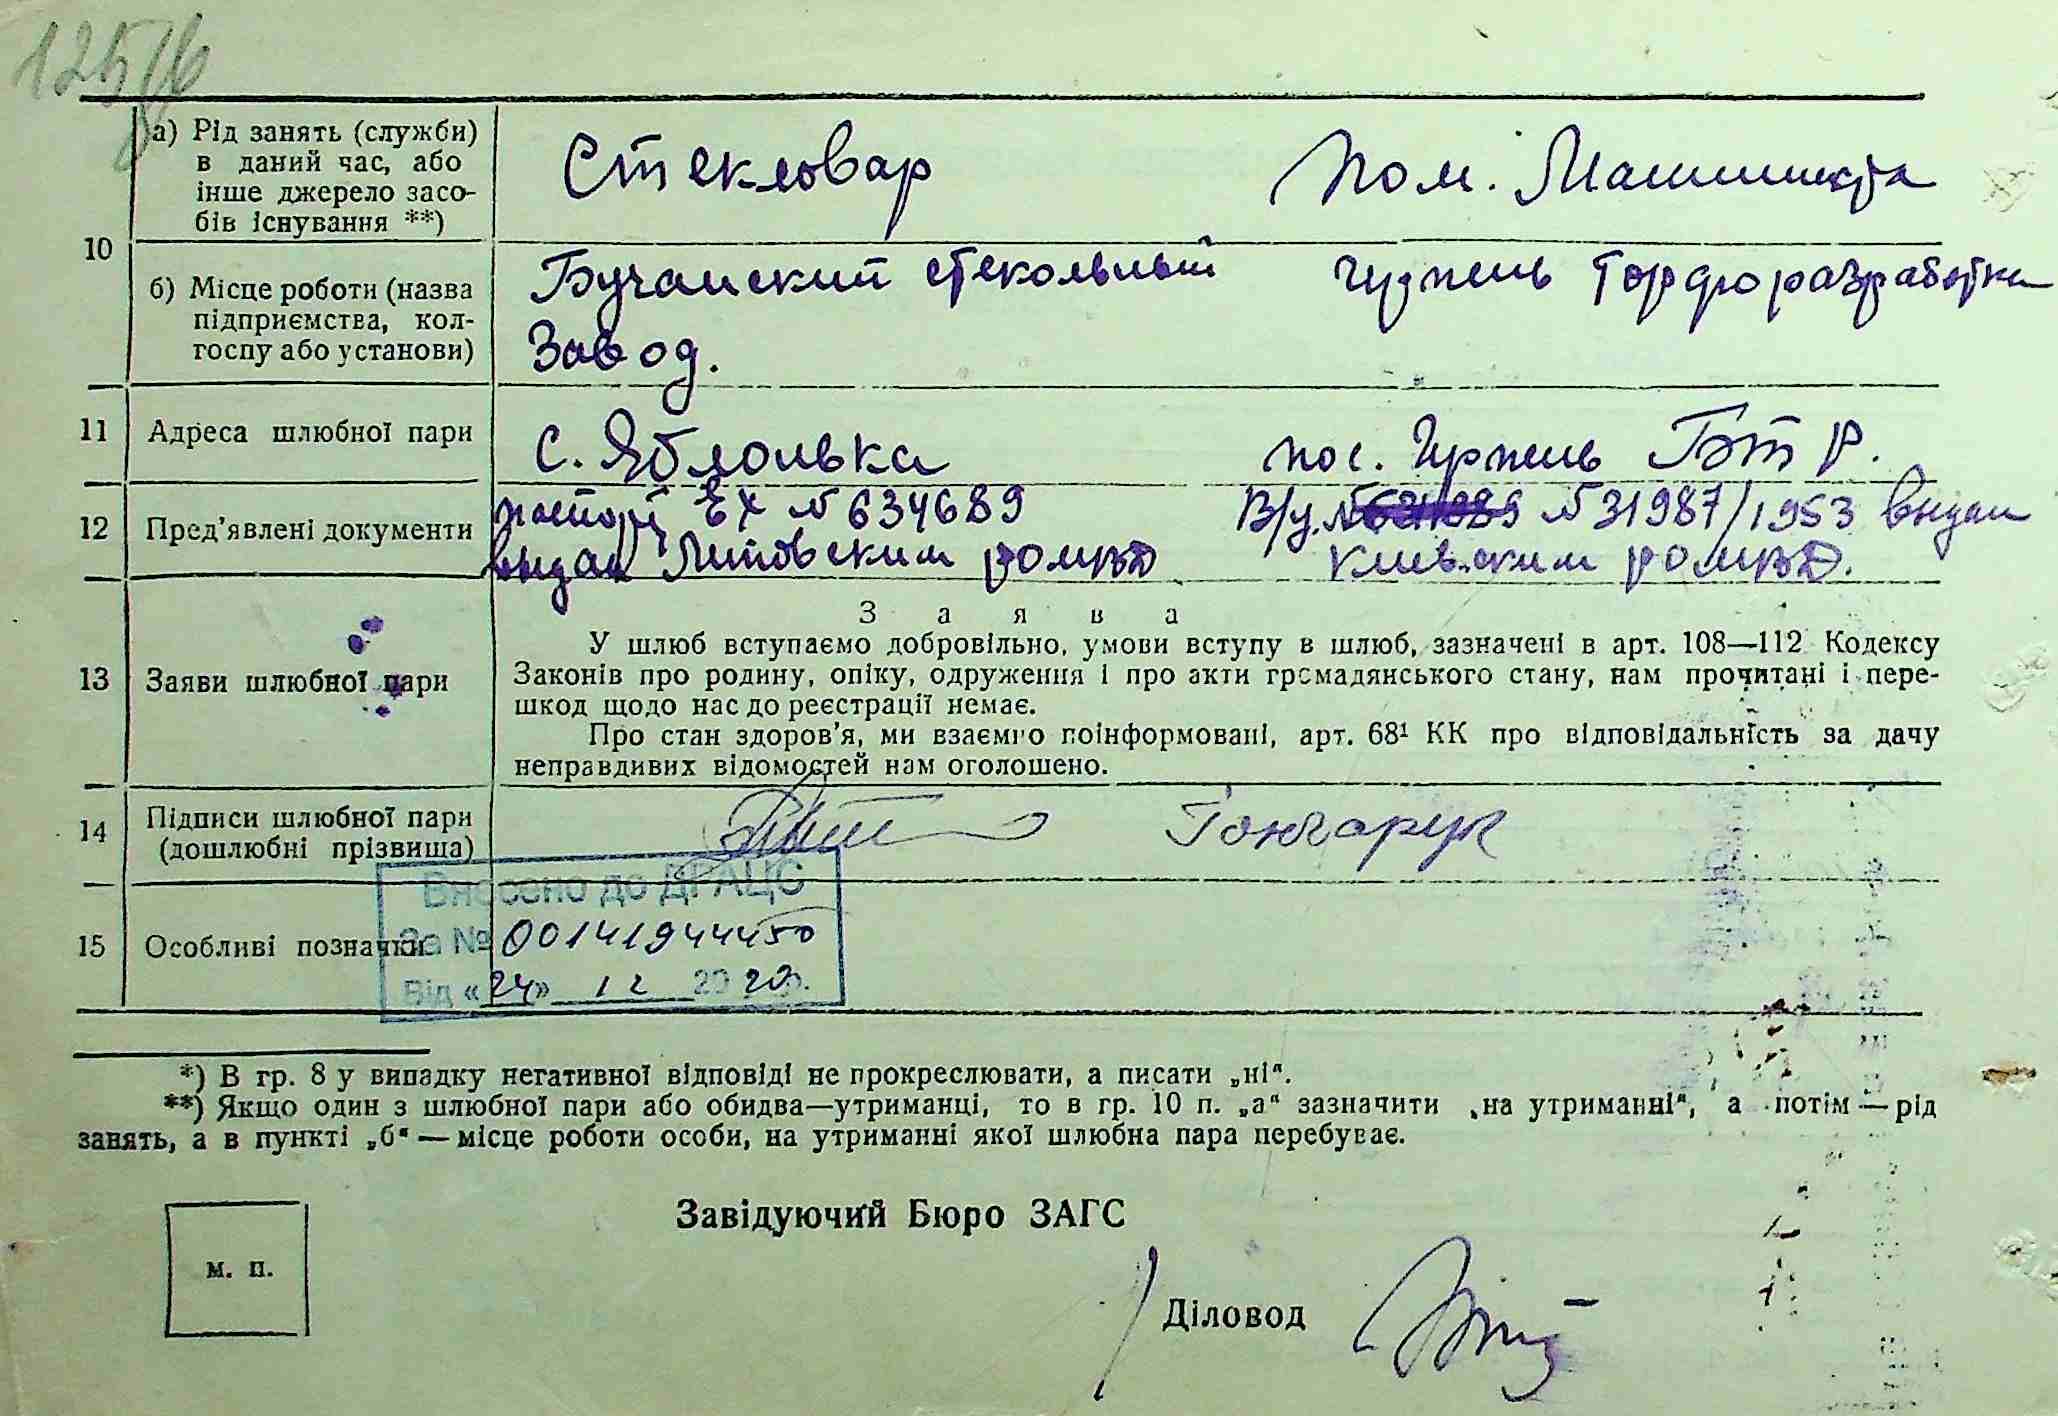 125/6
10
а) Рід занять (служби)
в даний час, або
інше джерело засо-
бів існування **)
Стекловар
Пом. Машиниста
б) Місце роботи (назва
підприємства, кол-
госпу або установи)
Бучанский стекольный
Завод.
Ирпень Торфоразработка
11
Адреса шлюбної пари
с. Яблонька
пос. Ирпень БТР.
12
Пред'явлені документи
паспорт ЕХ № 634689
выдан Литовским РОМВД
В/у. № 31987/1953 выдан
Киевским РОМВД.
13
Заяви шлюбної пари
Заява
У шлюб вступаємо добровільно, умови вступу в шлюб, зазначені в арт. 108—112 Кодексу
Законів про родину, опіку, одруження і про акти громадянського стану, нам прочитані і пере-
шкод щодо нас до реєстрації немає.
Про стан здоров'я, ми взаємно поінформовані, арт. 68¹ КК про відповідальність за дачу
неправдивих відомостей нам оголошено.
14
Підписи шлюбної пари
(дошлюбні прізвища)
Гончарук
15
Особливі позначки
Внесено до ДРАЦС
За № 00141944450
Від «24» 12 2020.
*) В гр. 8 у випадку негативної відповіді не прокреслювати, а писати „ні“.
**) Якщо один з шлюбної пари або обидва—утриманці, то в гр. 10 п. „а“ зазначити „на утриманні“, а потім—рід
занять, а в пункті „б“—місце роботи особи, на утриманні якої шлюбна пара перебуває.
Завідуючий Бюро ЗАГС
м. п.
Діловод